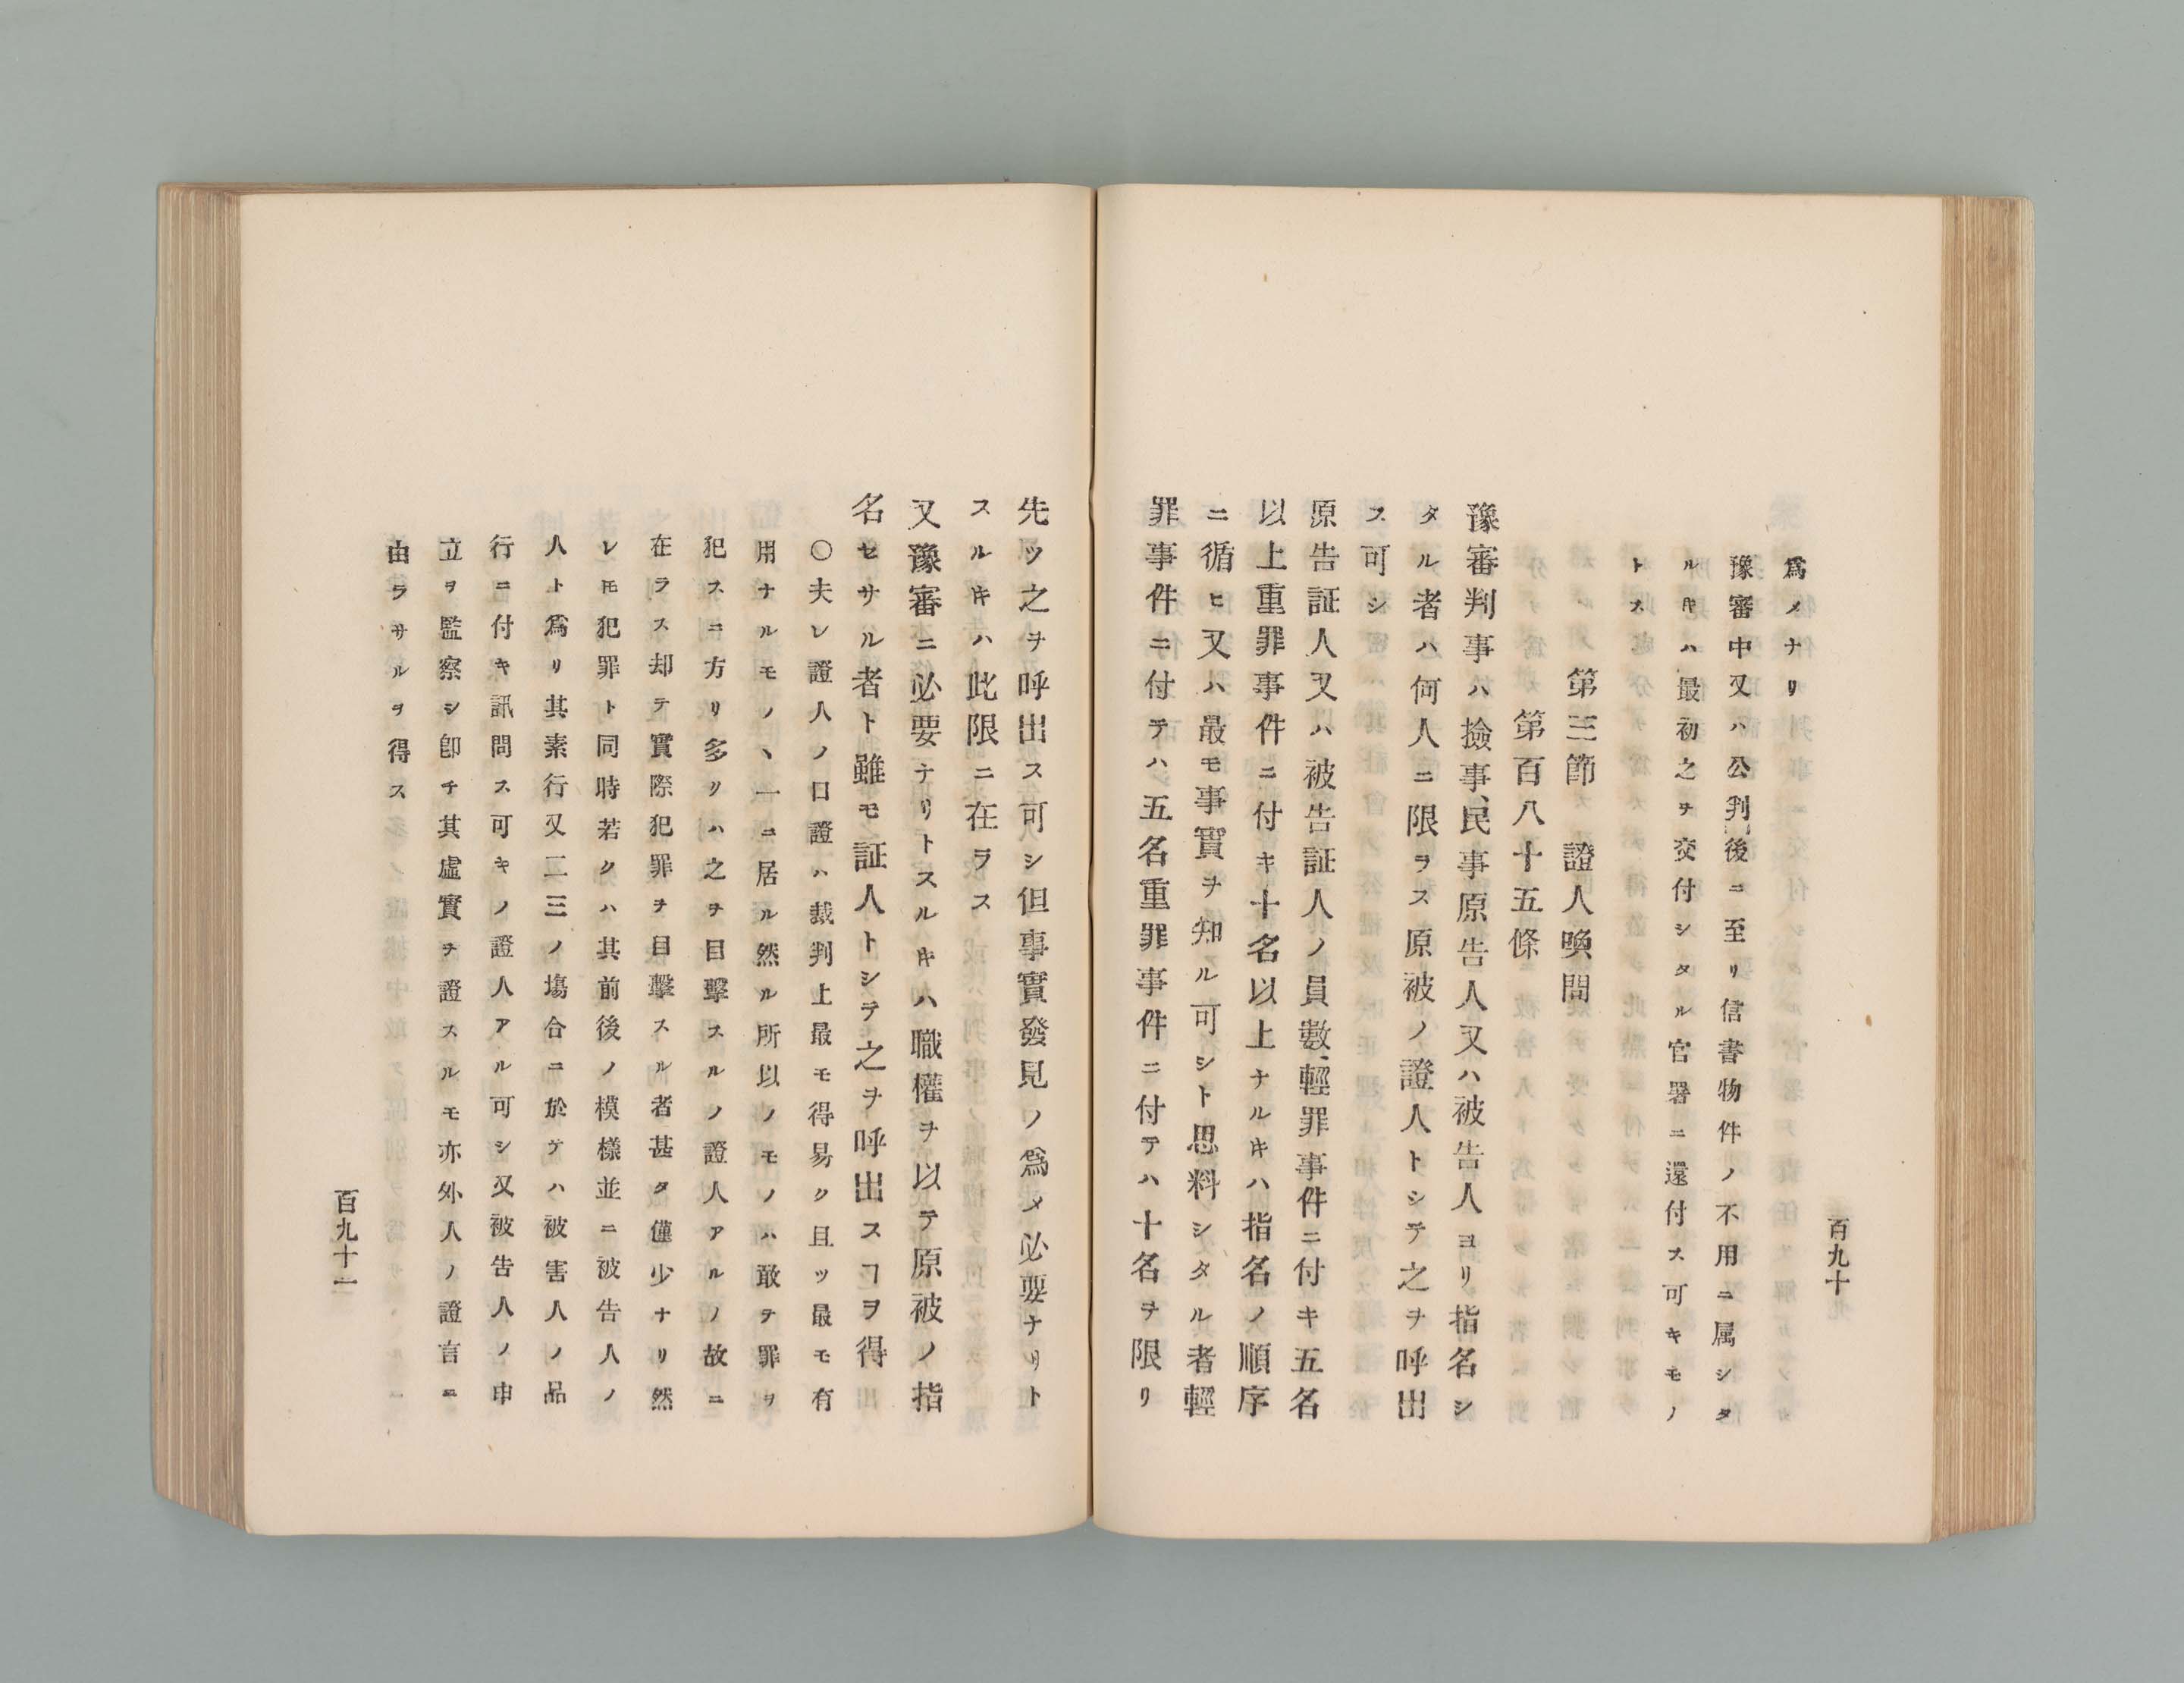 百九十
爲メナリ
豫審中又ハ公判後ニ至リ信書物件ノ不用ニ属シタ
ルキハ最初之ヲ交付シタル官署ニ還付ス可キモノ
トス
第三節　證人喚問
第百八十五條
豫審判事ハ撿事、民事原告人又ハ被告人ヨリ指名シ
タル者ハ何人ニ限ヲス原被ノ證人トシテ之ヲ呼出
ス可シ
原告証人又ハ被告証人ノ員數、輕罪事件ニ付キ五名
以上重罪事件ニ付キ十名以上ナルキハ指名ノ順序
ニ循ヒ又ハ最モ事實ヲ知ル可シト思料シタル者輕
罪事件ニ付テハ五名重罪事件ニ付テハ十名ヲ限リ
先ツ之ヲ呼出ス可シ但事實發見ノ爲メ必要ナリト
スルキハ此限ニ在ラス
又豫審ニ必要ナリトスルキハ職權ヲ以テ原被ノ指
名セサル者ト雖モ証人トシテ之ヲ呼出スヿヲ得
○夫レ證人ノ口證ハ裁判上最モ得易ク且ツ最モ有
用ナルモノヽ一ニ居ル然ル所以ノモノハ敢テ罪ヲ
犯スニ方リ多クハ之ヲ目擊スルノ證人アルノ故ニ
在ラス却テ實際犯罪ヲ目擊スル者甚タ僅少ナリ然
レモ犯罪ト同時若クハ其前後ノ模樣並ニ被告人ノ
人ト爲リ其素行又二三ノ塲合ニ於テハ被害人ノ品
行ニ付キ訊問ス可キノ證人アル可シ又被告人ノ申
立ヲ監察シ卽チ其虛實ヲ證スルモ亦外人ノ證言ニ
由ラサルヲ得ス
百九十一